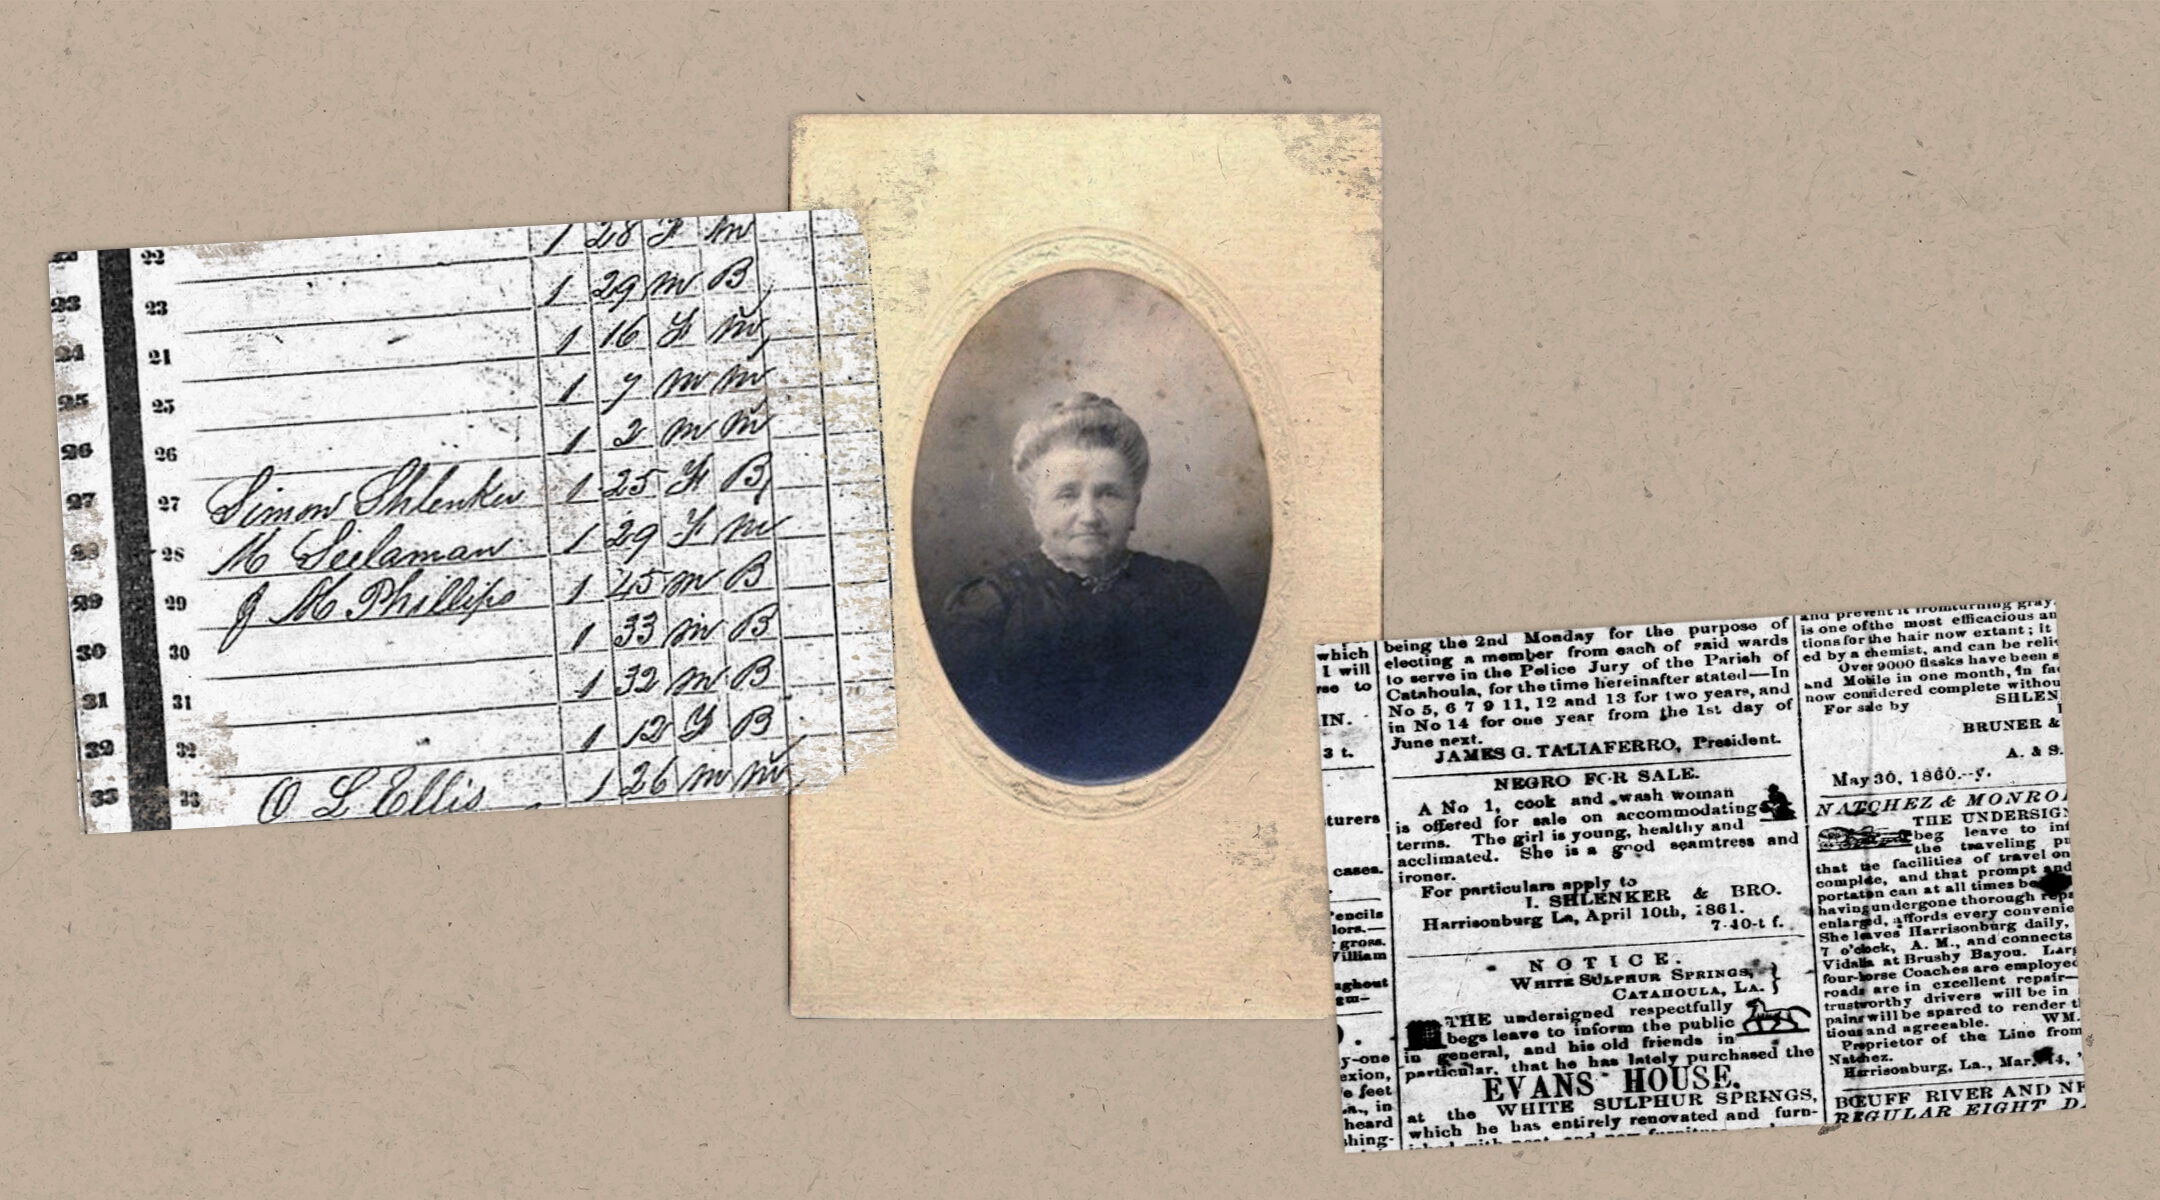 22 22 1 28 F M
23 23 1 29 M B
24 24 1 16 F M
25 25 1 7 M M
26 26 1 2 M M
27 27 Simon Shlenker 1 25 F B
28 28 M Seelaman 1 29 F M
29 29 J M Phillips 1 45 M B
30 30 1 33 M B
31 31 1 32 M B
32 32 1 12 F B
33 33 O L Ellis 1 26 M M
which
I will
to
IN.
3 t.
turers
cases.
Pencils
lors.—
gross.
William
ughout
y-one
exion,
feet
in
heard
shing-
being the 2nd Monday for the purpose of
electing a member from each of said wards
to serve in the Police Jury of the Parish of
Catahoula, for the time hereinafter stated—In
No 5, 6 7 9 11, 12 and 13 for two years, and
in No 14 for one year from the 1st day of
June next.
JAMES G. TALIAFERRO, President.
NEGRO FOR SALE.
A No 1, cook and wash woman
is offered for sale on accommodating
terms. The girl is young, healthy and
acclimated. She is a good seamtress and
ironer.
For particulars apply to
I. SHLENKER & BRO.
Harrisonburg La, April 10th, 1861.
7-10-t f.
NOTICE.
WHITE SULPHUR SPRINGS,
CATAHOULA, LA.
THE undersigned respectfully
begs leave to inform the public
in general, and his old friends in
particular, that he has lately purchased the
EVANS HOUSE.
at the WHITE SULPHUR SPRINGS,
which he has entirely renovated and furn-
and prevent it from turning gray.
is one of the most efficacious
tions for the hair now extant; it
ed by a chemist, and can be
Over 9000 flasks have been
and Mobile in one month, in
now considered complete
For sale by SHLEN
BRUNER &
A. & S.
May 30, 1860.--y.
NATCHEZ & MONRO
THE UNDERSIG
beg leave to
the traveling
that the facilities of travel on
complete, and that prompt and
portation can at all times be
having undergone thorough
enlarged, affords every
She leaves Harrisonburg daily,
7 o'clock, A. M., and connects
Vidalia at Brushy Bayou.
four-horse Coaches are employed
roads are in excellent repair—
trustworthy drivers will be in
pains will be spared to render
tious and agreeable. WM.
Proprietor of the Line from
Natchez.
Harrisonburg, La., Mar.
BŒUFF RIVER AND
REGULAR EIGHT